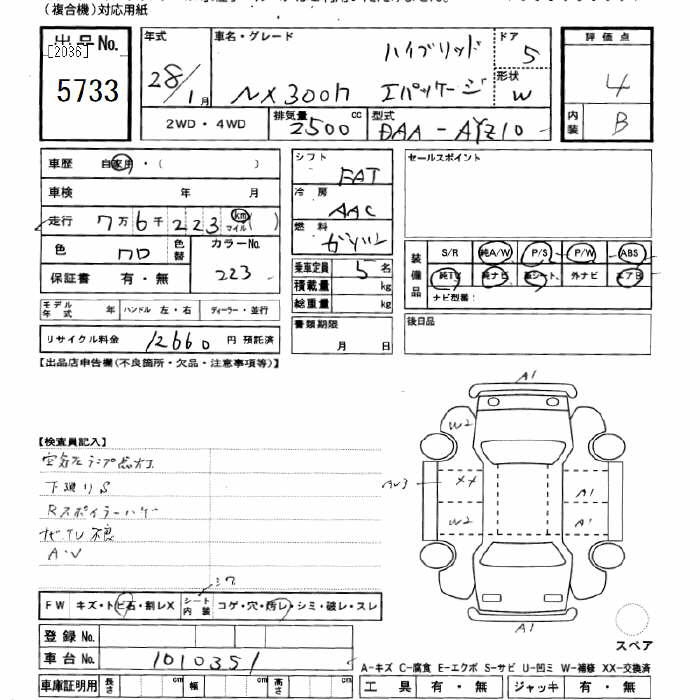 (複合機)対応用紙
出品No.
[2036]
5733
年式
28/1月
車名・グレード
ハイブリッド
NX300h エパッケージ
ドア
5
形状
W
2WD・4WD
排気量
2500cc
型式
DAA-AYZ10
評価点
4
内装
B
車歴 自家用・( )
車検 年 月
走行 7万6千223 km マイル( )
色 クロ
色替
カラーNo.
223
保証書 有・無
モデル年式 年
ハンドル 左・右
ディーラー・並行
リサイクル料金 12660 円 預託済
シフト
FAT
冷房
AAC
燃料
ガソリン
乗車定員 5名
積載量 kg
総重量 kg
書類期限
月 日
セールスポイント
装備品
S/R 純A/W P/S P/W ABS
純TV 純ナビ 革シート、外ナビ エアB
ナビ型番:
後日品
【出品店申告欄(不良箇所・欠品・注意事項等)】
【検査員記入】
空気圧ランプ点灯
下廻りS
Rスポイラーハゲ
ナビ.TV 不良
A・V
シワ
FW キズ・トビ石・割レX
シート内装 コゲ・穴・汚レ・シミ・破レ・スレ
登録No.
車台No. 1010351
車庫証明用 長さ cm 幅 cm 高さ cm
A1
W2
XX
A1
W2
A1
A1
スペア
A-キズ C-腐食 E-エクボ S-サビ U-凹ミ W-補修 XX-交換済
工具 有・無 ジャッキ 有・無